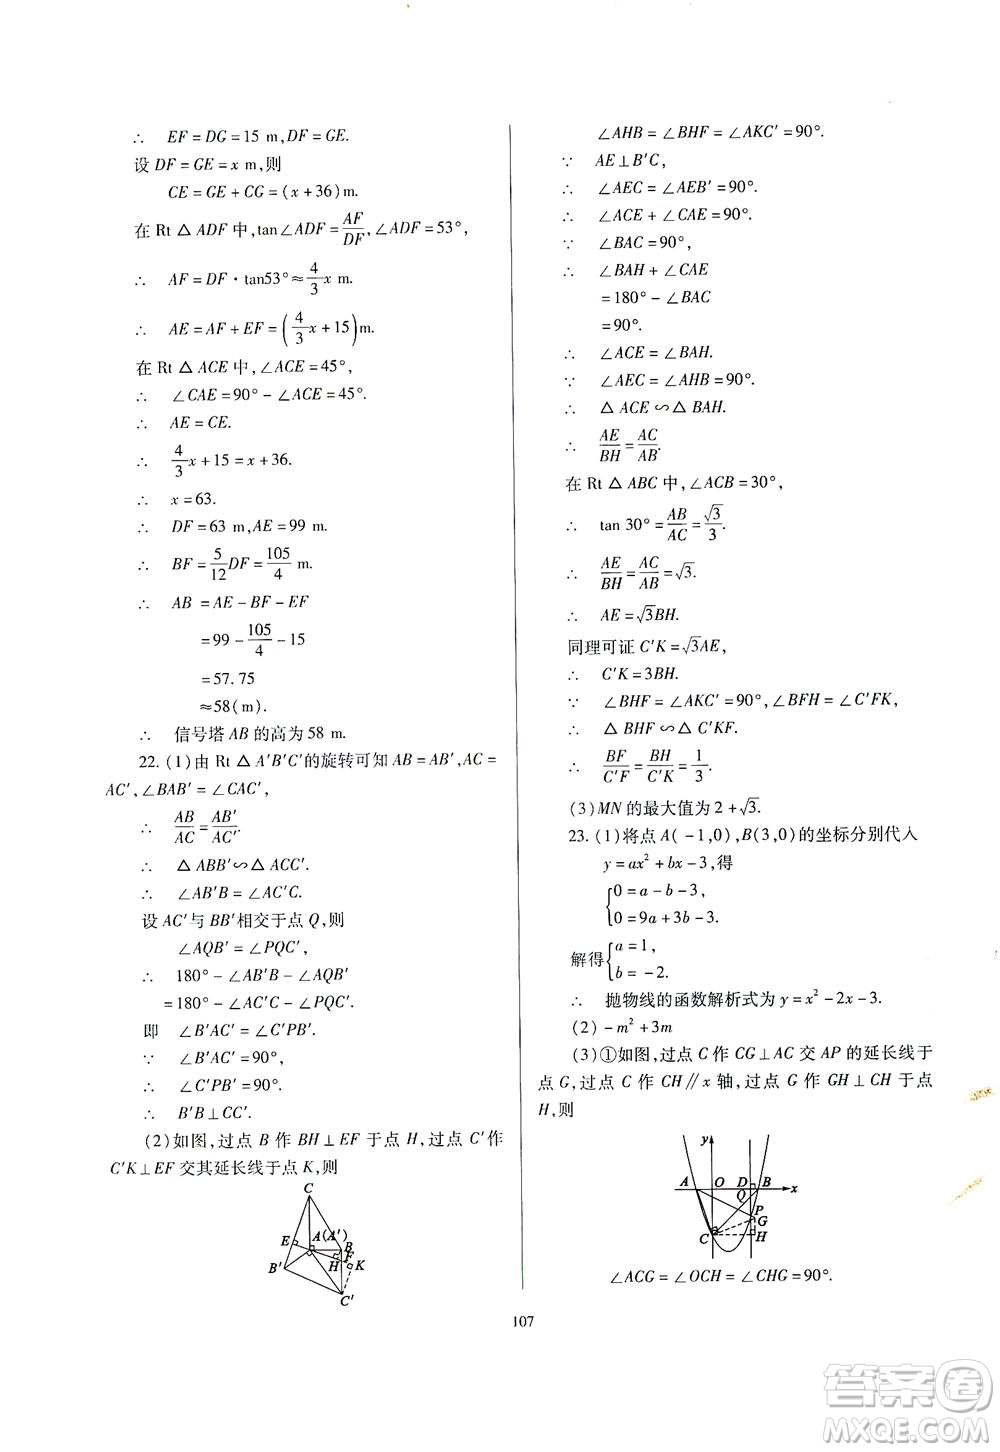 ∴ EF=DG=15 m,DF=GE.
设 DF=GE=x m,则
CE=GE+CG=(x+36)m.
在 Rt△ADF 中,tan∠ADF=AF/DF,∠ADF=53°,
∴ AF=DF·tan53°≈4/3x m.
∴ AE=AF+EF=(4/3x+15)m.
在 Rt△ACE 中,∠ACE=45°,
∴ ∠CAE=90°-∠ACE=45°.
∴ AE=CE.
∴ 4/3x+15=x+36.
∴ x=63.
∴ DF=63 m,AE=99 m.
∴ BF=5/12DF=105/4 m.
∴ AB=AE-BF-EF
=99-105/4-15
=57.75
≈58(m).
∴ 信号塔 AB 的高为 58 m.
22. (1)由 Rt△A'B'C'的旋转可知 AB=AB',AC=
AC',∠BAB'=∠CAC',
∴ AB/AC=AB'/AC'.
∴ △ABB'∽△ACC'.
∴ ∠AB'B=∠AC'C.
设 AC'与 BB'相交于点 Q,则
∠AQB'=∠PQC',
∴ 180°-∠AB'B-∠AQB'
=180°-∠AC'C-∠PQC'.
即 ∠B'AC'=∠C'PB'.
∵ ∠B'AC'=90°,
∴ ∠C'PB'=90°.
∴ B'B⊥CC'.
(2)如图,过点 B 作 BH⊥EF 于点 H,过点 C'作
C'K⊥EF 交其延长线于点 K,则
C
E
A(A')
B
H
F
K
B'
C'
∠AHB=∠BHF=∠AKC'=90°.
∵ AE⊥B'C,
∴ ∠AEC=∠AEB'=90°.
∴ ∠ACE+∠CAE=90°.
∵ ∠BAC=90°,
∴ ∠BAH+∠CAE
=180°-∠BAC
=90°.
∴ ∠ACE=∠BAH.
∵ ∠AEC=∠AHB=90°.
∴ △ACE∽△BAH.
∴ AE/BH=AC/AB.
在 Rt△ABC 中,∠ACB=30°,
∴ tan 30°=AB/AC=√3/3.
∴ AE/BH=AC/AB=√3.
∴ AE=√3BH.
同理可证 C'K=√3AE,
∴ C'K=3BH.
∵ ∠BHF=∠AKC'=90°,∠BFH=∠C'FK,
∴ △BHF∽△C'KF.
∴ BF/C'F=BH/C'K=1/3.
(3)MN 的最大值为 2+√3.
23. (1)将点 A(-1,0),B(3,0)的坐标分别代入
y=ax²+bx-3,得
{0=a-b-3,
0=9a+3b-3.
解得{a=1,
b=-2.
∴ 抛物线的函数解析式为 y=x²-2x-3.
(2)-m²+3m
(3)①如图,过点 C 作 CG⊥AC 交 AP 的延长线于
点 G,过点 C 作 CH∥x 轴,过点 G 作 GH⊥CH 于点
H,则
y
A O D B x
Q
P
G
C H
∠ACG=∠OCH=∠CHG=90°.
107
答案圈
MXQE.COM